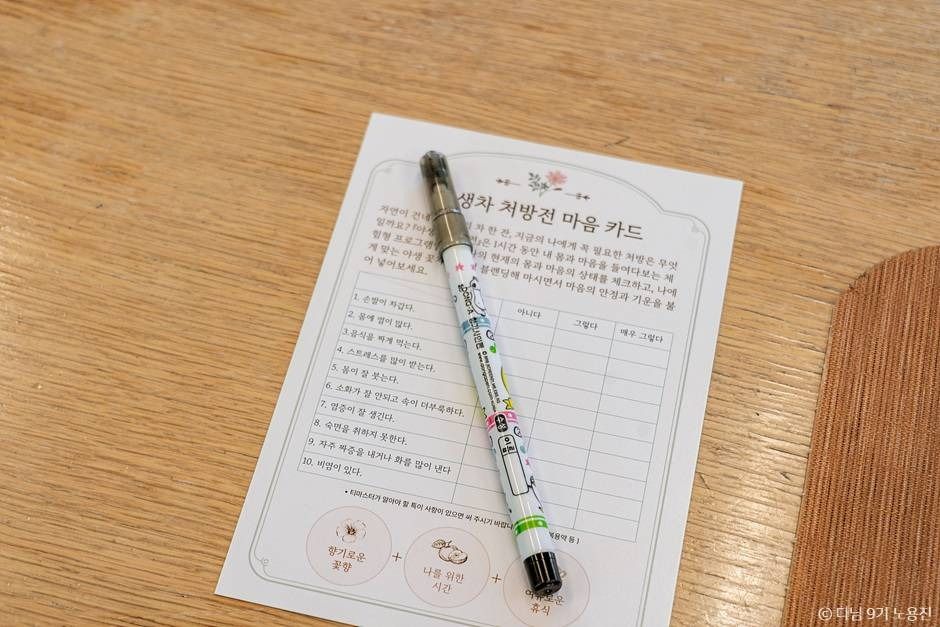 생차 처방전 마음 카드
자연이 건네 차 한 잔, 지금의 나에게 꼭 필요한 처방은 무엇
일까요? 「야생 은 1시간 동안 내 몸과 마음을 들여다보는 체
험형 프로그램 의 현재의 몸과 마음의 상태를 체크하고, 나에
게 맞는 야생 꽃 블렌딩해 마시면서 마음의 안정과 기운을 불
어 넣어보세요.
아니다 그렇다 매우 그렇다
1. 손발이 차갑다.
2. 몸에 열이 많다.
3.음식을 짜게 먹는다.
4. 스트레스를 많이 받는다.
5. 몸이 잘 붓는다.
6. 소화가 잘 안되고 속이 더부룩하다.
7. 염증이 잘 생긴다.
8. 숙면을 취하지 못한다.
9. 자주 짜증을 내거나 화를 많이 낸다
10. 비염이 있다.
• 티마스터가 알아야 할 특이 사항이 있으면 써 주시기 바랍니 복용약 등 )
향기로운
꽃향
+
나를 위한
시간
+
여유로운
휴식
DONG-A
이름
© 다님 9기 노용진